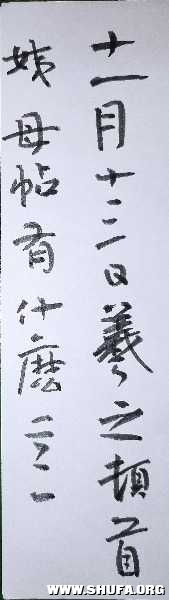 十一月十三日羲之顿首
姨母帖有什麽
WWW.SHUFA.ORG